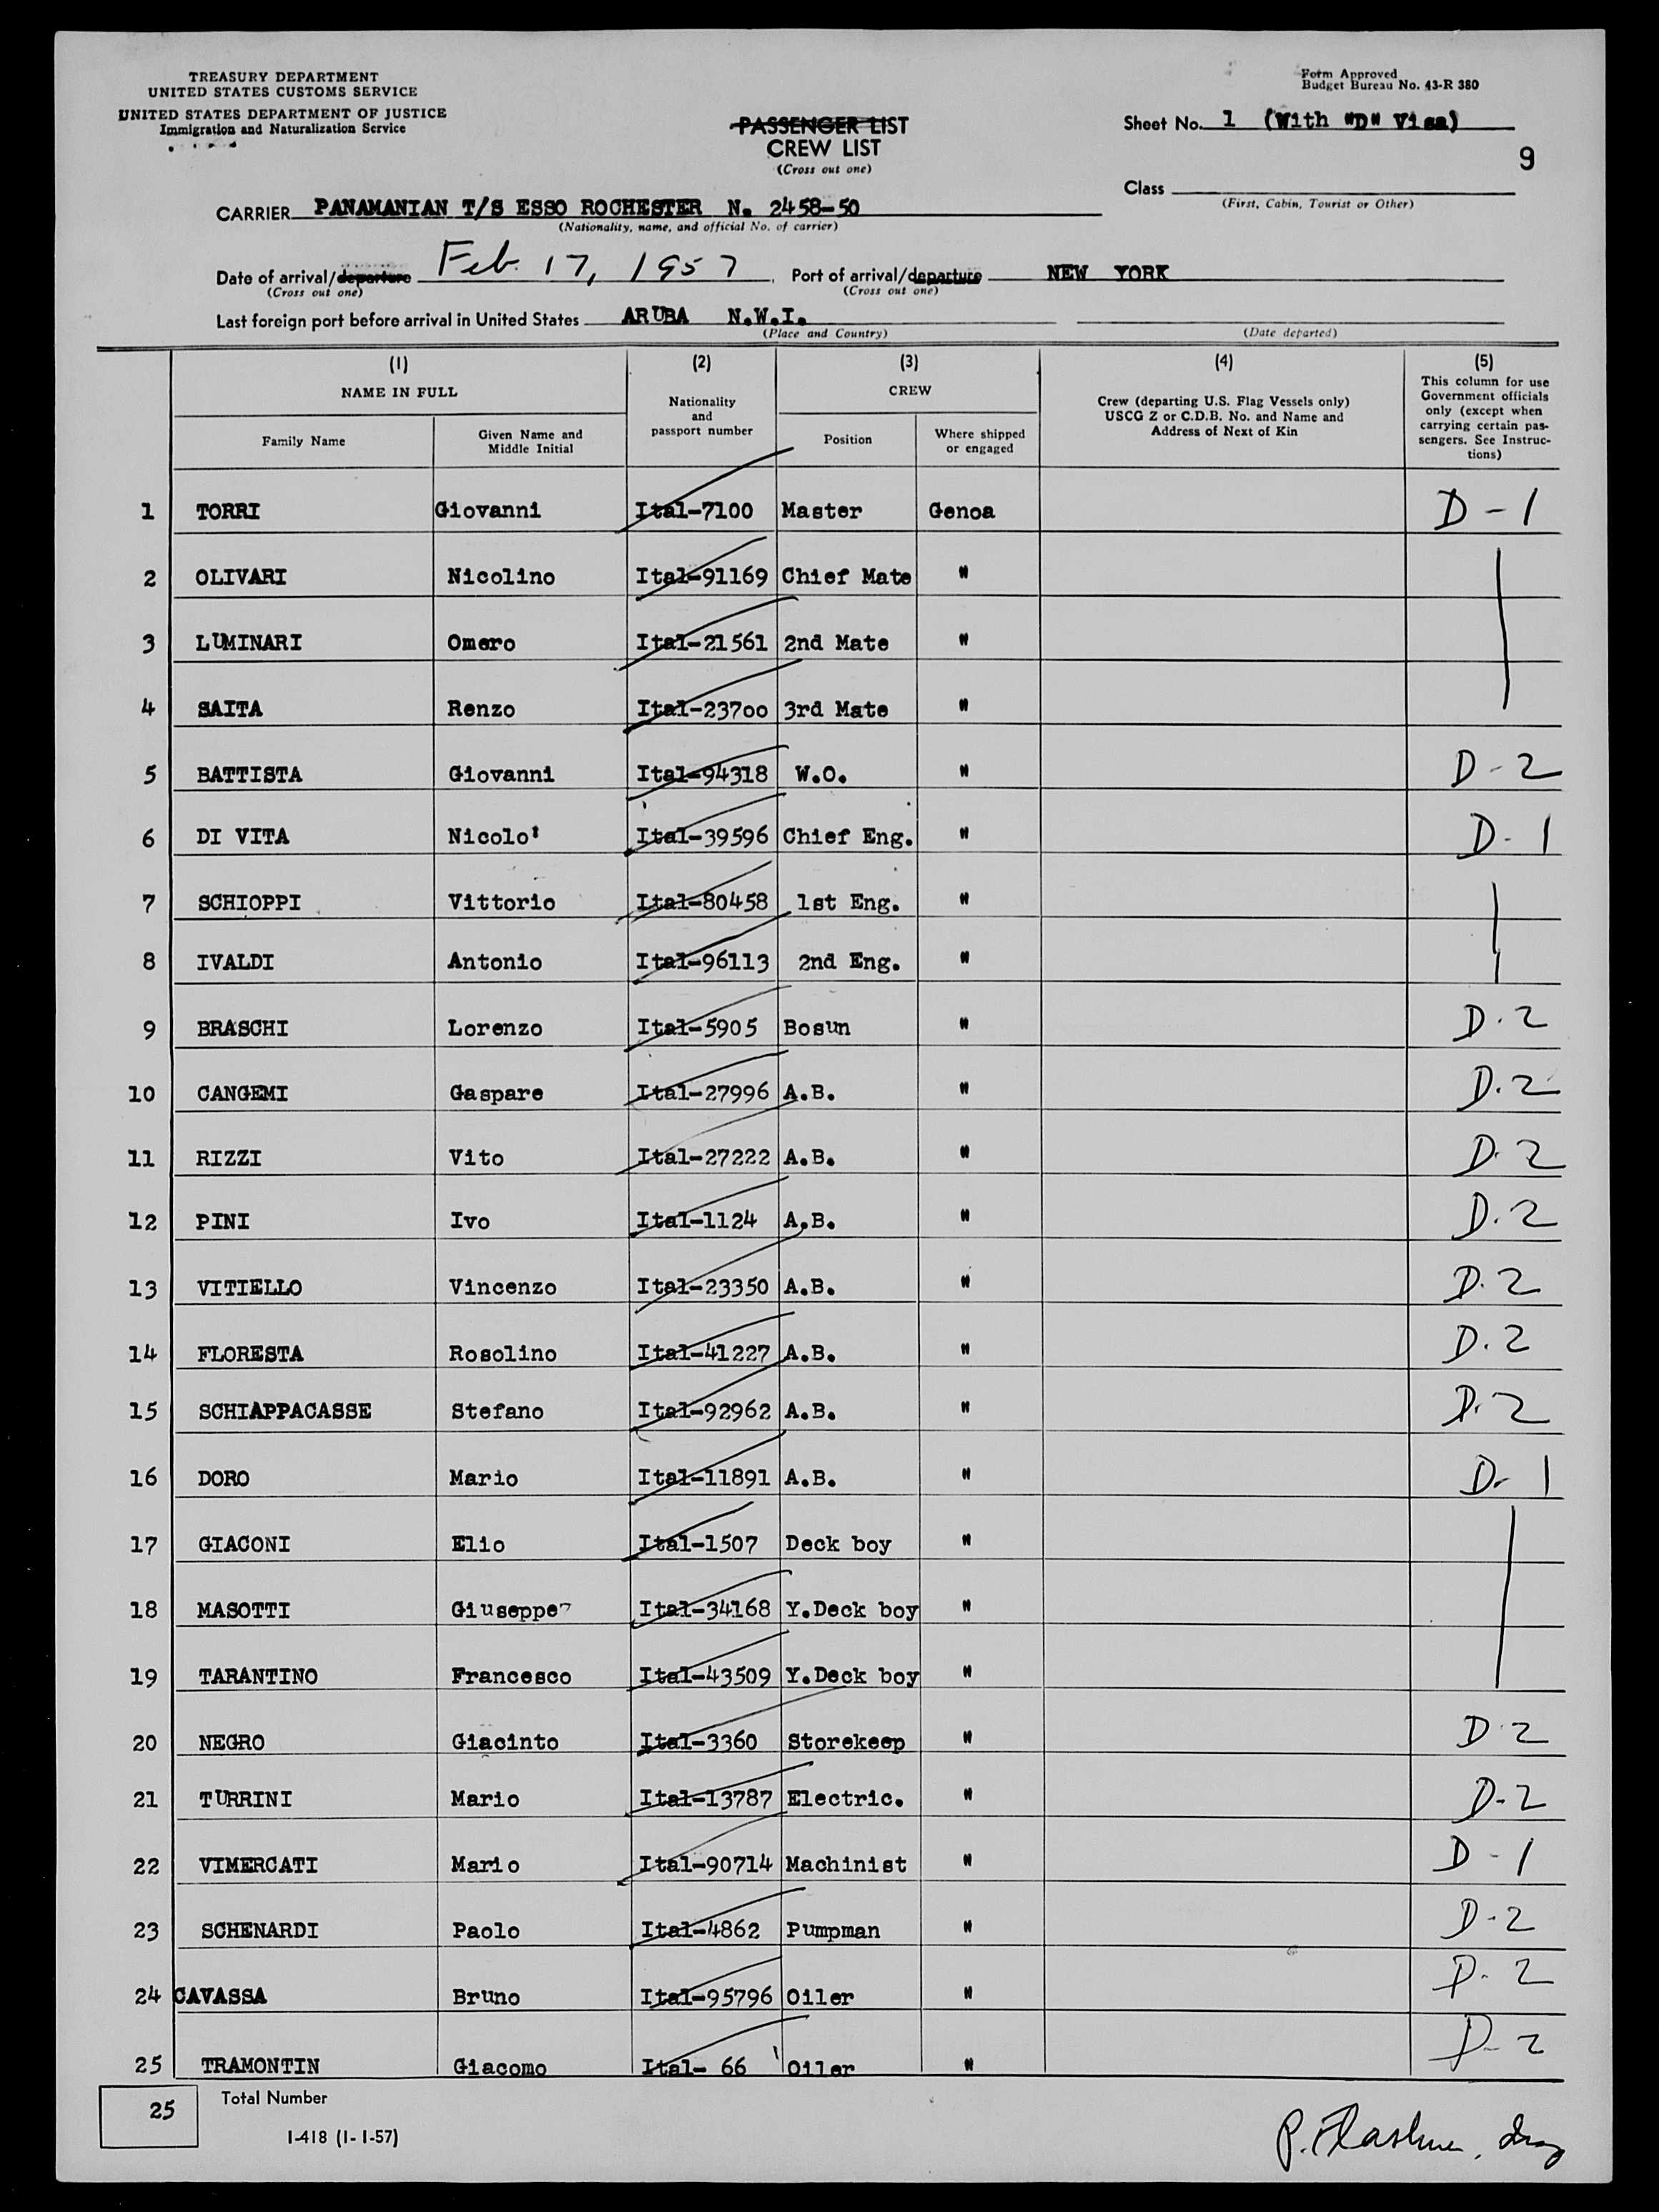 TREASURY DEPARTMENT
UNITED STATES CUSTOMS SERVICE
UNITED STATES DEPARTMENT OF JUSTICE
Immigration and Naturalization Service
Form Approved
Budget Bureau No. 43-R 380
PASSENGER LIST
CREW LIST
(Cross out one)
Sheet No. 1 (With "D" Visa)
9
Class
(First, Cabin, Tourist or Other)
CARRIER PANAMANIAN T/S ESSO ROCHESTER N. 2458-50
(Nationality, name, and official No. of carrier)
Date of arrival/departure Feb. 17, 1957, Port of arrival/departure NEW YORK
(Cross out one) (Cross out one)
Last foreign port before arrival in United States ARUBA N.W.I.
(Place and Country) (Date departed)
(1) (2) (3) (4) (5)
NAME IN FULL
Family Name
Given Name and Middle Initial
Nationality and passport number
CREW
Position
Where shipped or engaged
Crew (departing U.S. Flag Vessels only)
USCG Z or C.D.B. No. and Name and
Address of Next of Kin
This column for use
Government officials
only (except when
carrying certain pas-
sengers. See Instruc-
tions)
1 TORRI Giovanni Ital-7100 Master Genoa D-1
2 OLIVARI Nicolino Ital-91169 Chief Mate "
3 LUMINARI Omero Ital-21561 2nd Mate "
4 SAITA Renzo Ital-23700 3rd Mate "
5 BATTISTA Giovanni Ital-94318 W.O. " D-2
6 DI VITA Nicolo' Ital-39596 Chief Eng. " D-1
7 SCHIOPPI Vittorio Ital-80458 1st Eng. "
8 IVALDI Antonio Ital-96113 2nd Eng. "
9 BRASCHI Lorenzo Ital-5905 Bosun " D.2
10 CANGEMI Gaspare Ital-27996 A.B. " D.2
11 RIZZI Vito Ital-27222 A.B. " D.2
12 PINI Ivo Ital-1124 A.B. " D.2
13 VITIELLO Vincenzo Ital-23350 A.B. " D.2
14 FLORESTA Rosolino Ital-41227 A.B. " D.2
15 SCHIAPPACASSE Stefano Ital-92962 A.B. " D.2
16 DORO Mario Ital-11891 A.B. " D-1
17 GIACONI Elio Ital-1507 Deck boy "
18 MASOTTI Giuseppe Ital-34168 Y.Deck boy "
19 TARANTINO Francesco Ital-43509 Y.Deck boy "
20 NEGRO Giacinto Ital-3360 Storekeep " D-2
21 TURRINI Mario Ital-13787 Electric. " D-2
22 VIMERCATI Mario Ital-90714 Machinist " D-1
23 SCHENARDI Paolo Ital-4862 Pumpman " D-2
24 CAVASSA Bruno Ital-95796 Oiler " D-2
25 TRAMONTIN Giacomo Ital- 66 Oiler " D-2
25 Total Number
I-418 (1-1-57)
P.